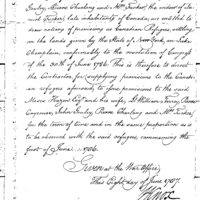 Gosley, Pierre Charland and Mrs. Tucker the widow of Daniel
Tucker, late inhabitants of Canada, are entitled to
draw rations of provisions as Canadian Refugees, settling
on the lands given by the State of New York on Lake
Champlain, conformably to the resolution of Congress
of the 30th of June 1786. This is therefore to direct
the Contractor for supplying provisions to the Canadi-
an refugees aforesaid, to issue provisions to the said
Moses Hazen Esq. and his wife, Lt. William Torrey, Thomas
John Gosley, Pierre Charland and Mrs. Tucker,
for the term of time and in the same proportion as is
to be observed with the said refugees commencing the
first of June 1786.
Given at the War Office,
this Eight day of June 1787.
HKnox